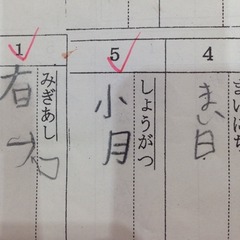 4
まいにち
まい日
5
しょうがつ
小月
1
みぎあし
右